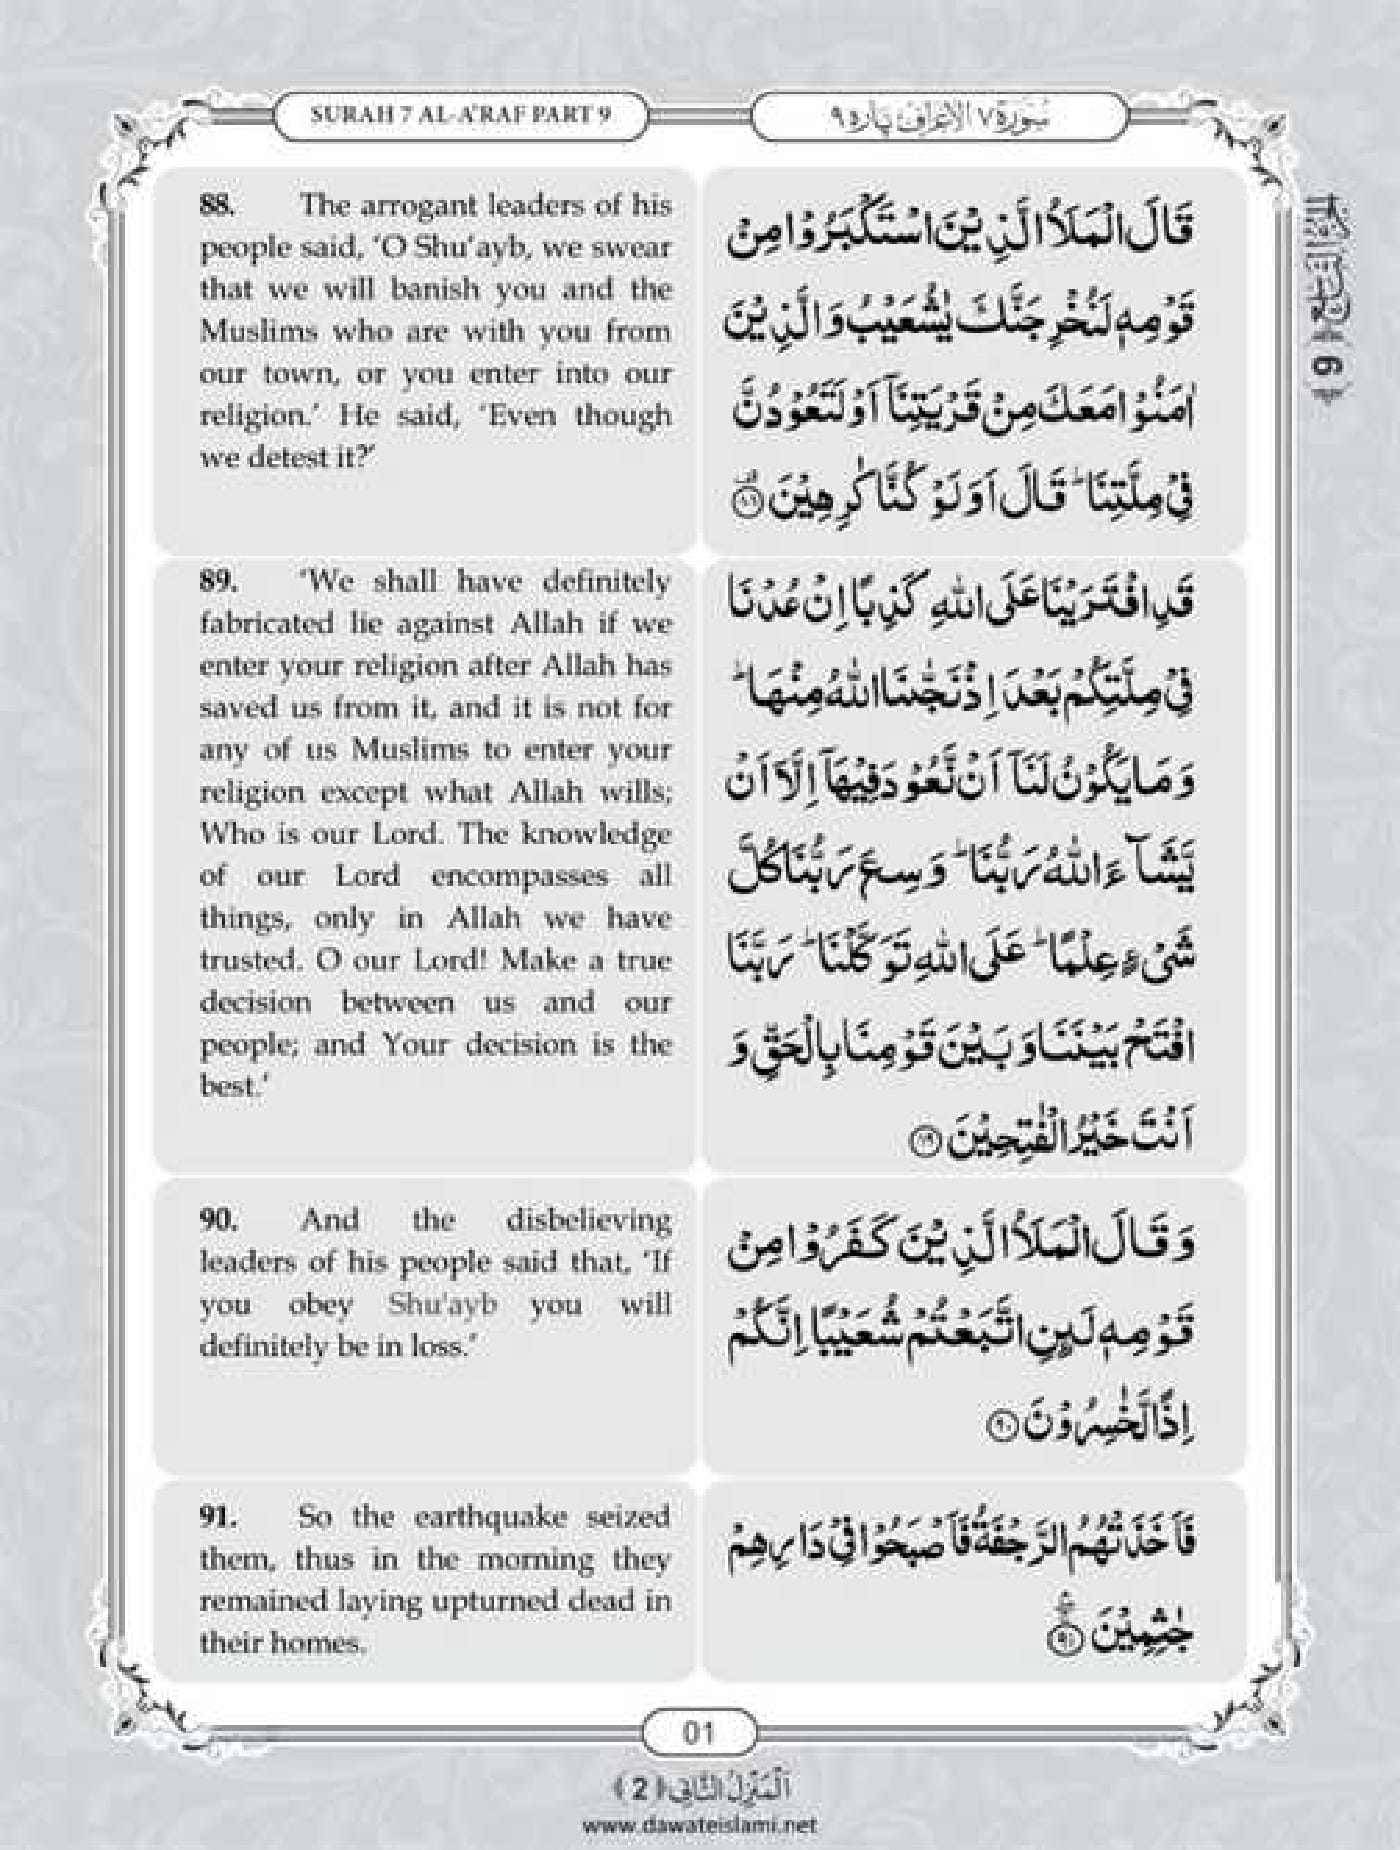 SURAH 7 AL-A'RAF PART 9
سُورَة ٧ الْاَعْرَاف پارہ ٩
88. The arrogant leaders of his
people said, 'O Shu'ayb, we swear
that we will banish you and the
Muslims who are with you from
our town, or you enter into our
religion.' He said, 'Even though
we detest it?'
قَالَ الْمَلَاُ الَّذِیْنَ اسْتَكْبَرُوْا مِنْ
قَوْمِهٖ لَنُخْرِجَنَّكَ یٰشُعَیْبُ وَ الَّذِیْنَ
اٰمَنُوْا مَعَكَ مِنْ قَرْیَتِنَاۤ اَوْ لَتَعُوْدُنَّ
فِیْ مِلَّتِنَاؕ قَالَ اَوَ لَوْ كُنَّا كٰرِهِیْنَ ﴿۸۸﴾
89. 'We shall have definitely
fabricated lie against Allah if we
enter your religion after Allah has
saved us from it, and it is not for
any of us Muslims to enter your
religion except what Allah wills;
Who is our Lord. The knowledge
of our Lord encompasses all
things, only in Allah we have
trusted. O our Lord! Make a true
decision between us and our
people; and Your decision is the
best.'
قَدِ افْتَرَیْنَا عَلَی اللّٰهِ كَذِبًا اِنْ عُدْنَا
فِیْ مِلَّتِكُمْ بَعْدَ اِذْ نَجّٰىنَا اللّٰهُ مِنْهَاؕ
وَ مَا یَكُوْنُ لَنَاۤ اَنْ نَّعُوْدَ فِیْهَاۤ اِلَّاۤ اَنْ
یَّشَآءَ اللّٰهُ رَبُّنَاؕ وَسِعَ رَبُّنَا كُلَّ
شَیْءٍ عِلْمًاؕ عَلَی اللّٰهِ تَوَكَّلْنَاؕ رَبَّنَا
افْتَحْ بَیْنَنَا وَ بَیْنَ قَوْمِنَا بِالْحَقِّ وَ
اَنْتَ خَیْرُ الْفٰتِحِیْنَ ﴿۸۹﴾
90. And the disbelieving
leaders of his people said that, 'If
you obey Shu'ayb you will
definitely be in loss.'
وَ قَالَ الْمَلَاُ الَّذِیْنَ كَفَرُوْا مِنْ
قَوْمِهٖ لَىِٕنِ اتَّبَعْتُمْ شُعَیْبًا اِنَّكُمْ
اِذًا لَّخٰسِرُوْنَ ﴿۹۰﴾
91. So the earthquake seized
them, thus in the morning they
remained laying upturned dead in
their homes.
فَاَخَذَتْهُمُ الرَّجْفَةُ فَاَصْبَحُوْا فِیْ دَارِهِمْ
جٰثِمِیْنَ ﴿۹۱﴾
الجزء التاسع ﴿9﴾
01
اَلْمَنْزِلُ الثَّانِی ﴿2﴾
www.dawateislami.net